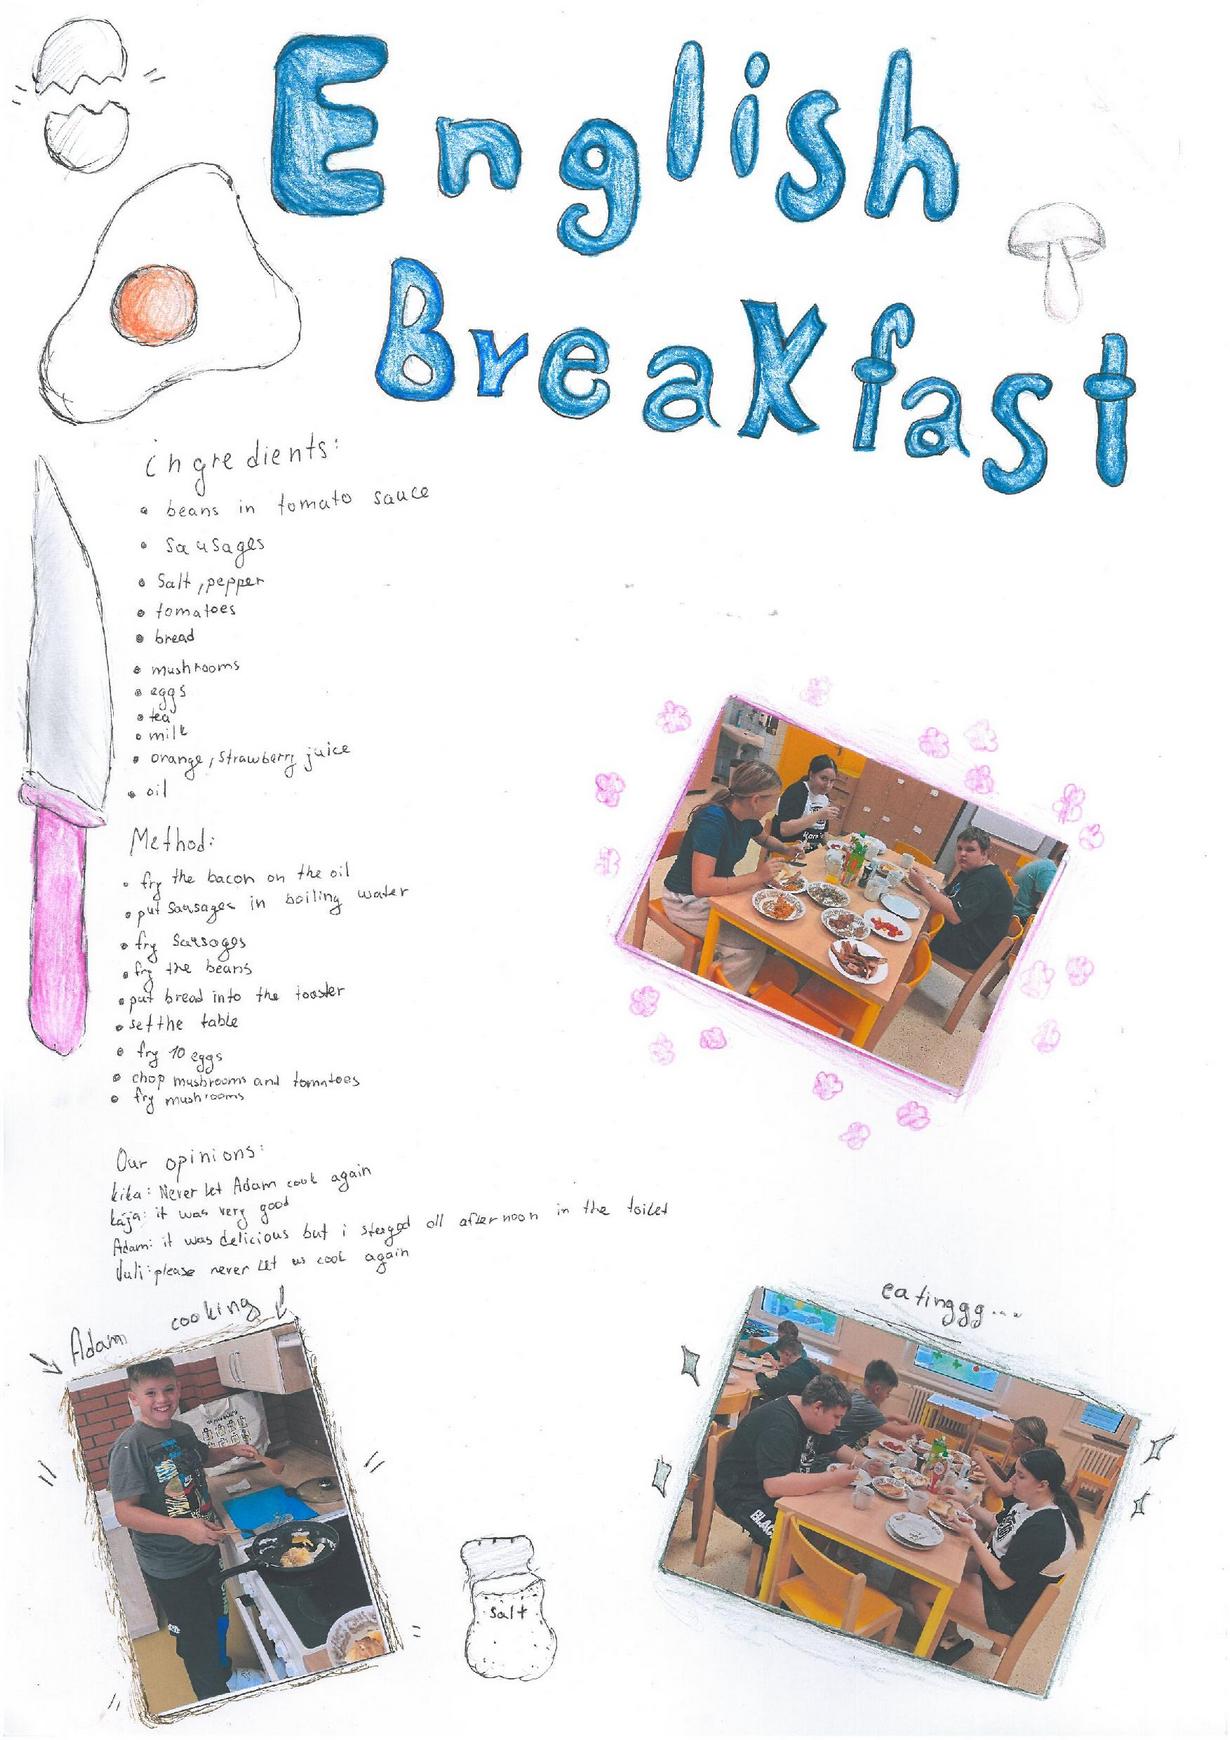 English
Breakfast
ingredients:
• beans in tomato sauce
• Sausages
• Salt, pepper
• tomatoes
• bread
• mushrooms
• eggs
• tea
• milk
• orange, strawberry juice
• oil
Method:
• fry the bacon on the oil
• put sausages in boiling water
• fry sausages
• fry the beans
• put bread into the toaster
• set the table
• fry 10 eggs
• chop mushrooms and tomatoes
• fry mushrooms
Our opinions:
kika: Never let Adam cook again
kája: it was very good
Adam: it was delicious but i stayed all afternoon in the toilet
Juli: please never let us cook again
Adam cooking
eatinggg...
salt